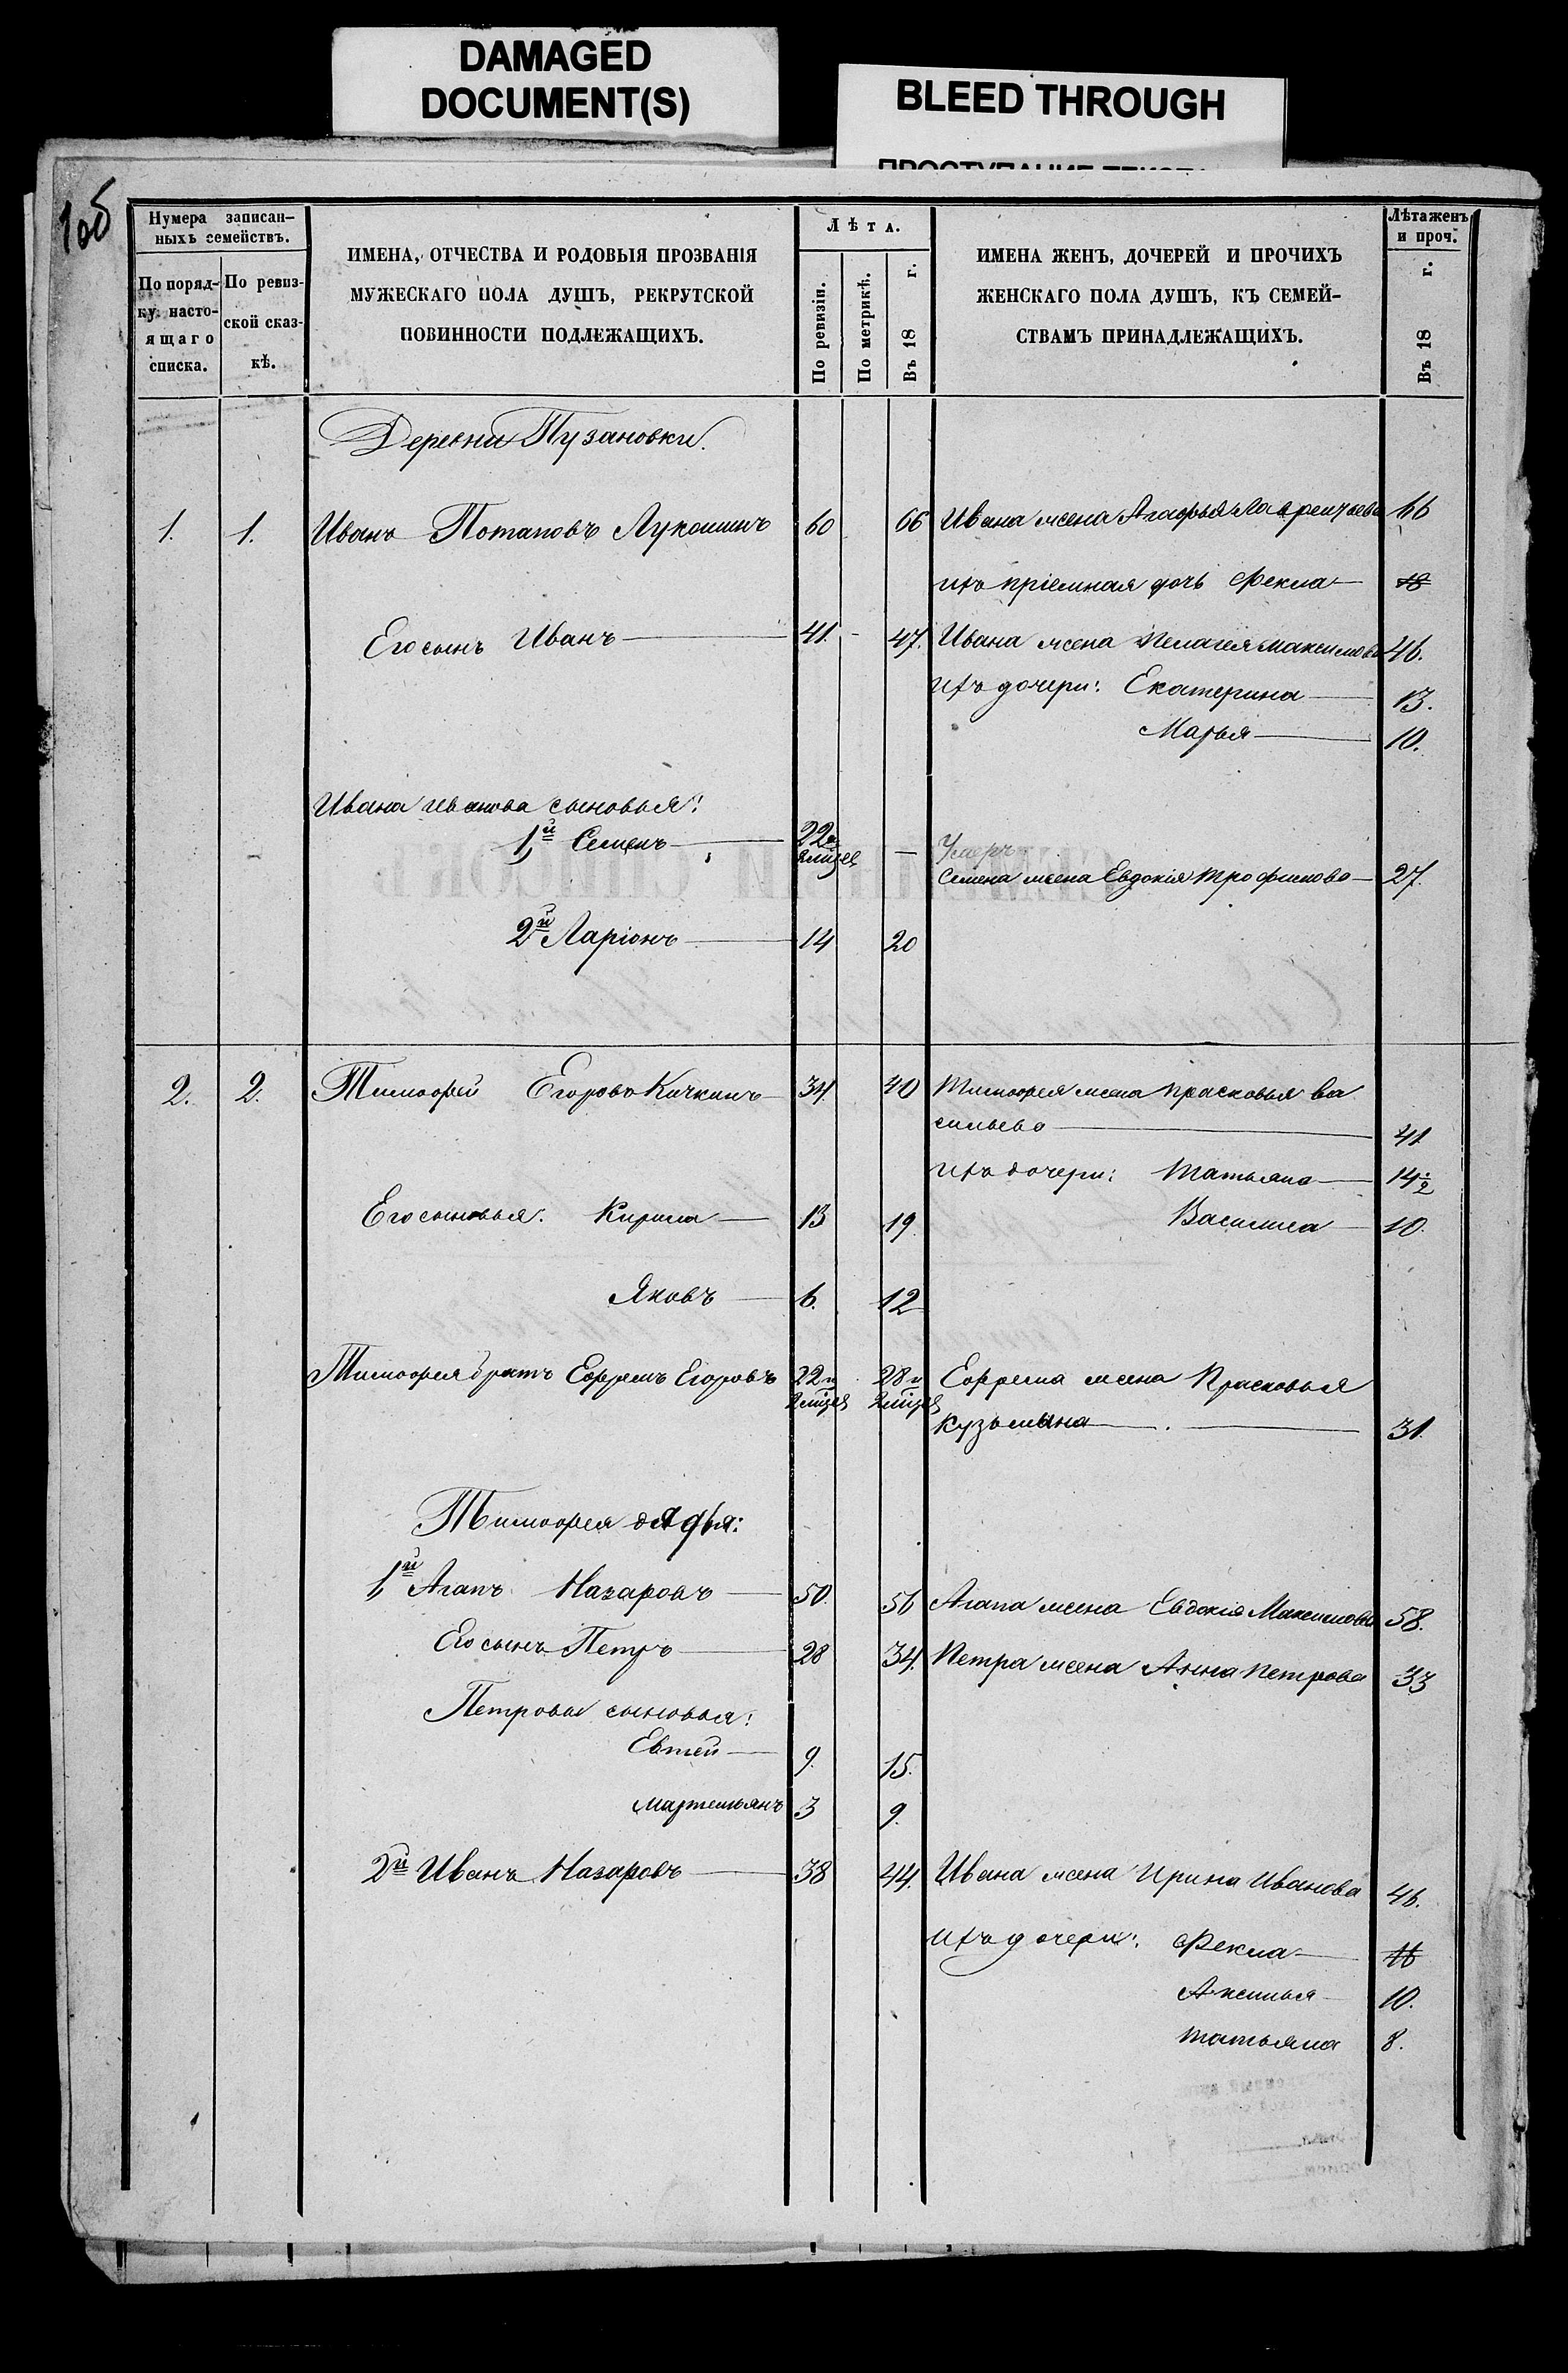 DAMAGED
DOCUMENT(S)
BLEED THROUGH
1об
Нумера записан-
ныхъ семействъ.
По поряд-
ку насто-
ящаго
списка.
По ревиз-
ской сказ-
кѣ.
ИМЕНА, ОТЧЕСТВА И РОДОВЫЯ ПРОЗВАНІЯ
МУЖЕСКАГО ПОЛА ДУШЪ, РЕКРУТСКОЙ
ПОВИННОСТИ ПОДЛЕЖАЩИХЪ.
Лѣта.
По ревизіи.
По метрикѣ.
Въ 18 г.
ИМЕНА ЖЕНЪ, ДОЧЕРЕЙ И ПРОЧИХЪ
ЖЕНСКАГО ПОЛА ДУШЪ, КЪ СЕМЕЙ-
СТВАМЪ ПРИНАДЛЕЖАЩИХЪ.
Лѣта женъ
и проч.
Въ 18 г.
Деревни Пузановки.
1. 1. Иванъ Потаповъ Лукошинъ 60 66 Ивана жена Агафья Лаврентьева 66
ихъ пріемная дочь Фекла 18
Его сынъ Иванъ 41. 47. Ивана жена Пелагея Максимова 46.
ихъ дочери: Екатерина 13.
Марья 10.
Ивана Иванова сыновья:
1й Семенъ 22 — Умеръ
Семена жена Евдокія Трофимова 27.
2й Ларіонъ 14 20
2. 2. Тимофей Егоровъ Качкинъ 34 40 Тимофея жена Прасковья Ва
сильева 41
ихъ дочери: Татьяна 14½
Его сыновья: Кирила 13 19 Василиса 10.
Яковъ 6. 12
Тимофея братъ Ефремъ Егоровъ 22 и 28 и Ефрема жена Прасковья
Кузьмина 31.
Тимофея дядья:
1й Агапъ Назаровъ 50. 56 Агапа жена Евдокія Максимова 58.
Его сынъ Петръ 28 34. Петра жена Анна Петрова 33
Петровы сыновья:
Евтей 9. 15.
Мартемьянъ 3 9.
2й Иванъ Назаровъ 38 44. Ивана жена Ирина Иванова 46.
ихъ дочери: Фекла 16
Аксинья 10.
Татьяна 8.